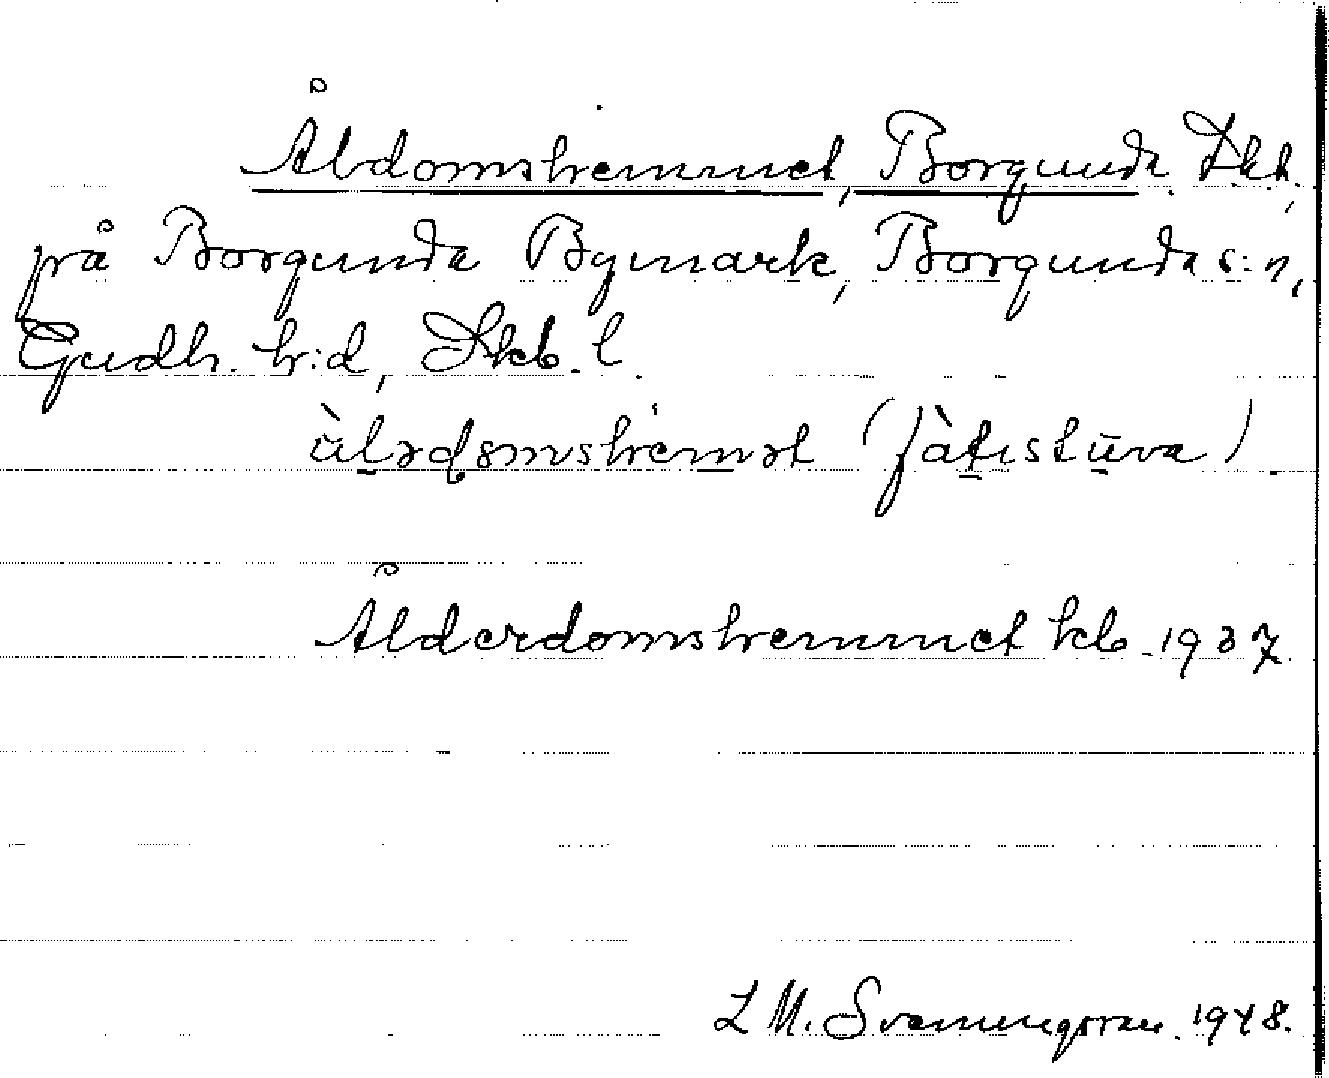 Åldomshemmet, Borgunda Skt,
på Borgunda Bymark, Borgunda s:n,
Gudh. h:d, Skb. l.
(fàtıstūva)
Ålderdomshemmet kb. 1937.
L M. Svenungsson. 1948.